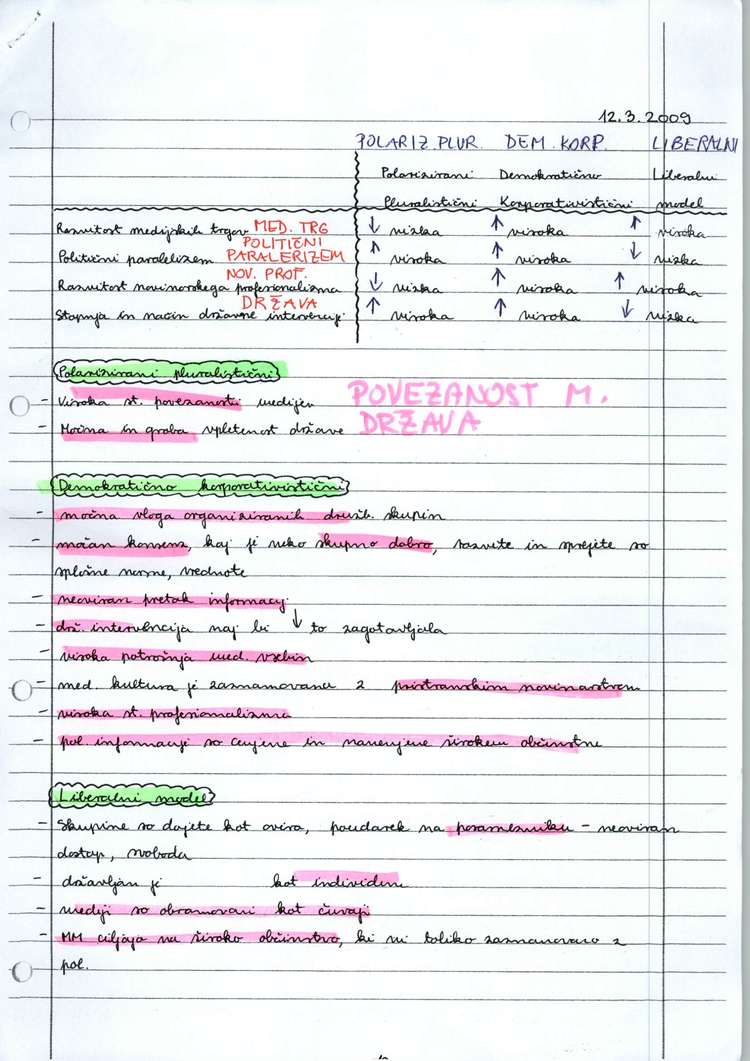 12.3.2009
POLARIZ. PLUR. DEM. KORP. LIBERALNI
Polarizirani Demokratično Liberalni
Pluralistični Korporativistični model
Razvitost medijskih trgov MED. TRG ↓ nizka ↑ visoka ↑ visoka
POLITIČNI
Politični paralelizem PARALERIZEM ↑ visoka ↑ visoka ↓ nizka
NOV. PROF.
Razvitost novinarskega profesionalizma ↓ nizka ↑ visoka ↑ visoka
DRŽAVA
Stopnja in način državne intervencije ↑ visoka ↑ visoka ↓ nizka
Polarizirani pluralistični
- Visoka st. povezanosti medijev POVEZANOST M.
- Močna in groba vpletenost države DRŽAVA
Demokratično korporativistični
- močna vloga organiziranih družb. skupin
- močan konsenz, kaj je neko skupno dobro, razvite in sprejete so
splošne norme, vrednote
- neoviran pretok informacij
- drž. intervencija naj bi ↓ to zagotavljala
- visoka potrošnja med. vsebin
- med. kultura je zaznamovana z pristranskim novinarstvom
- visoka st. profesionalizma
- pol. informacije so cenjene in namenjene širokem občinstvu
Liberalni model
- Skupine so dojete kot ovira, poudarek na posamezniku - neoviran
dostop, svoboda
- državljan je kot individum
- mediji so obramovani kot čuvaji
- MM ciljajo na široko občinstvo, ki ni toliko zaznamovano z
pol.